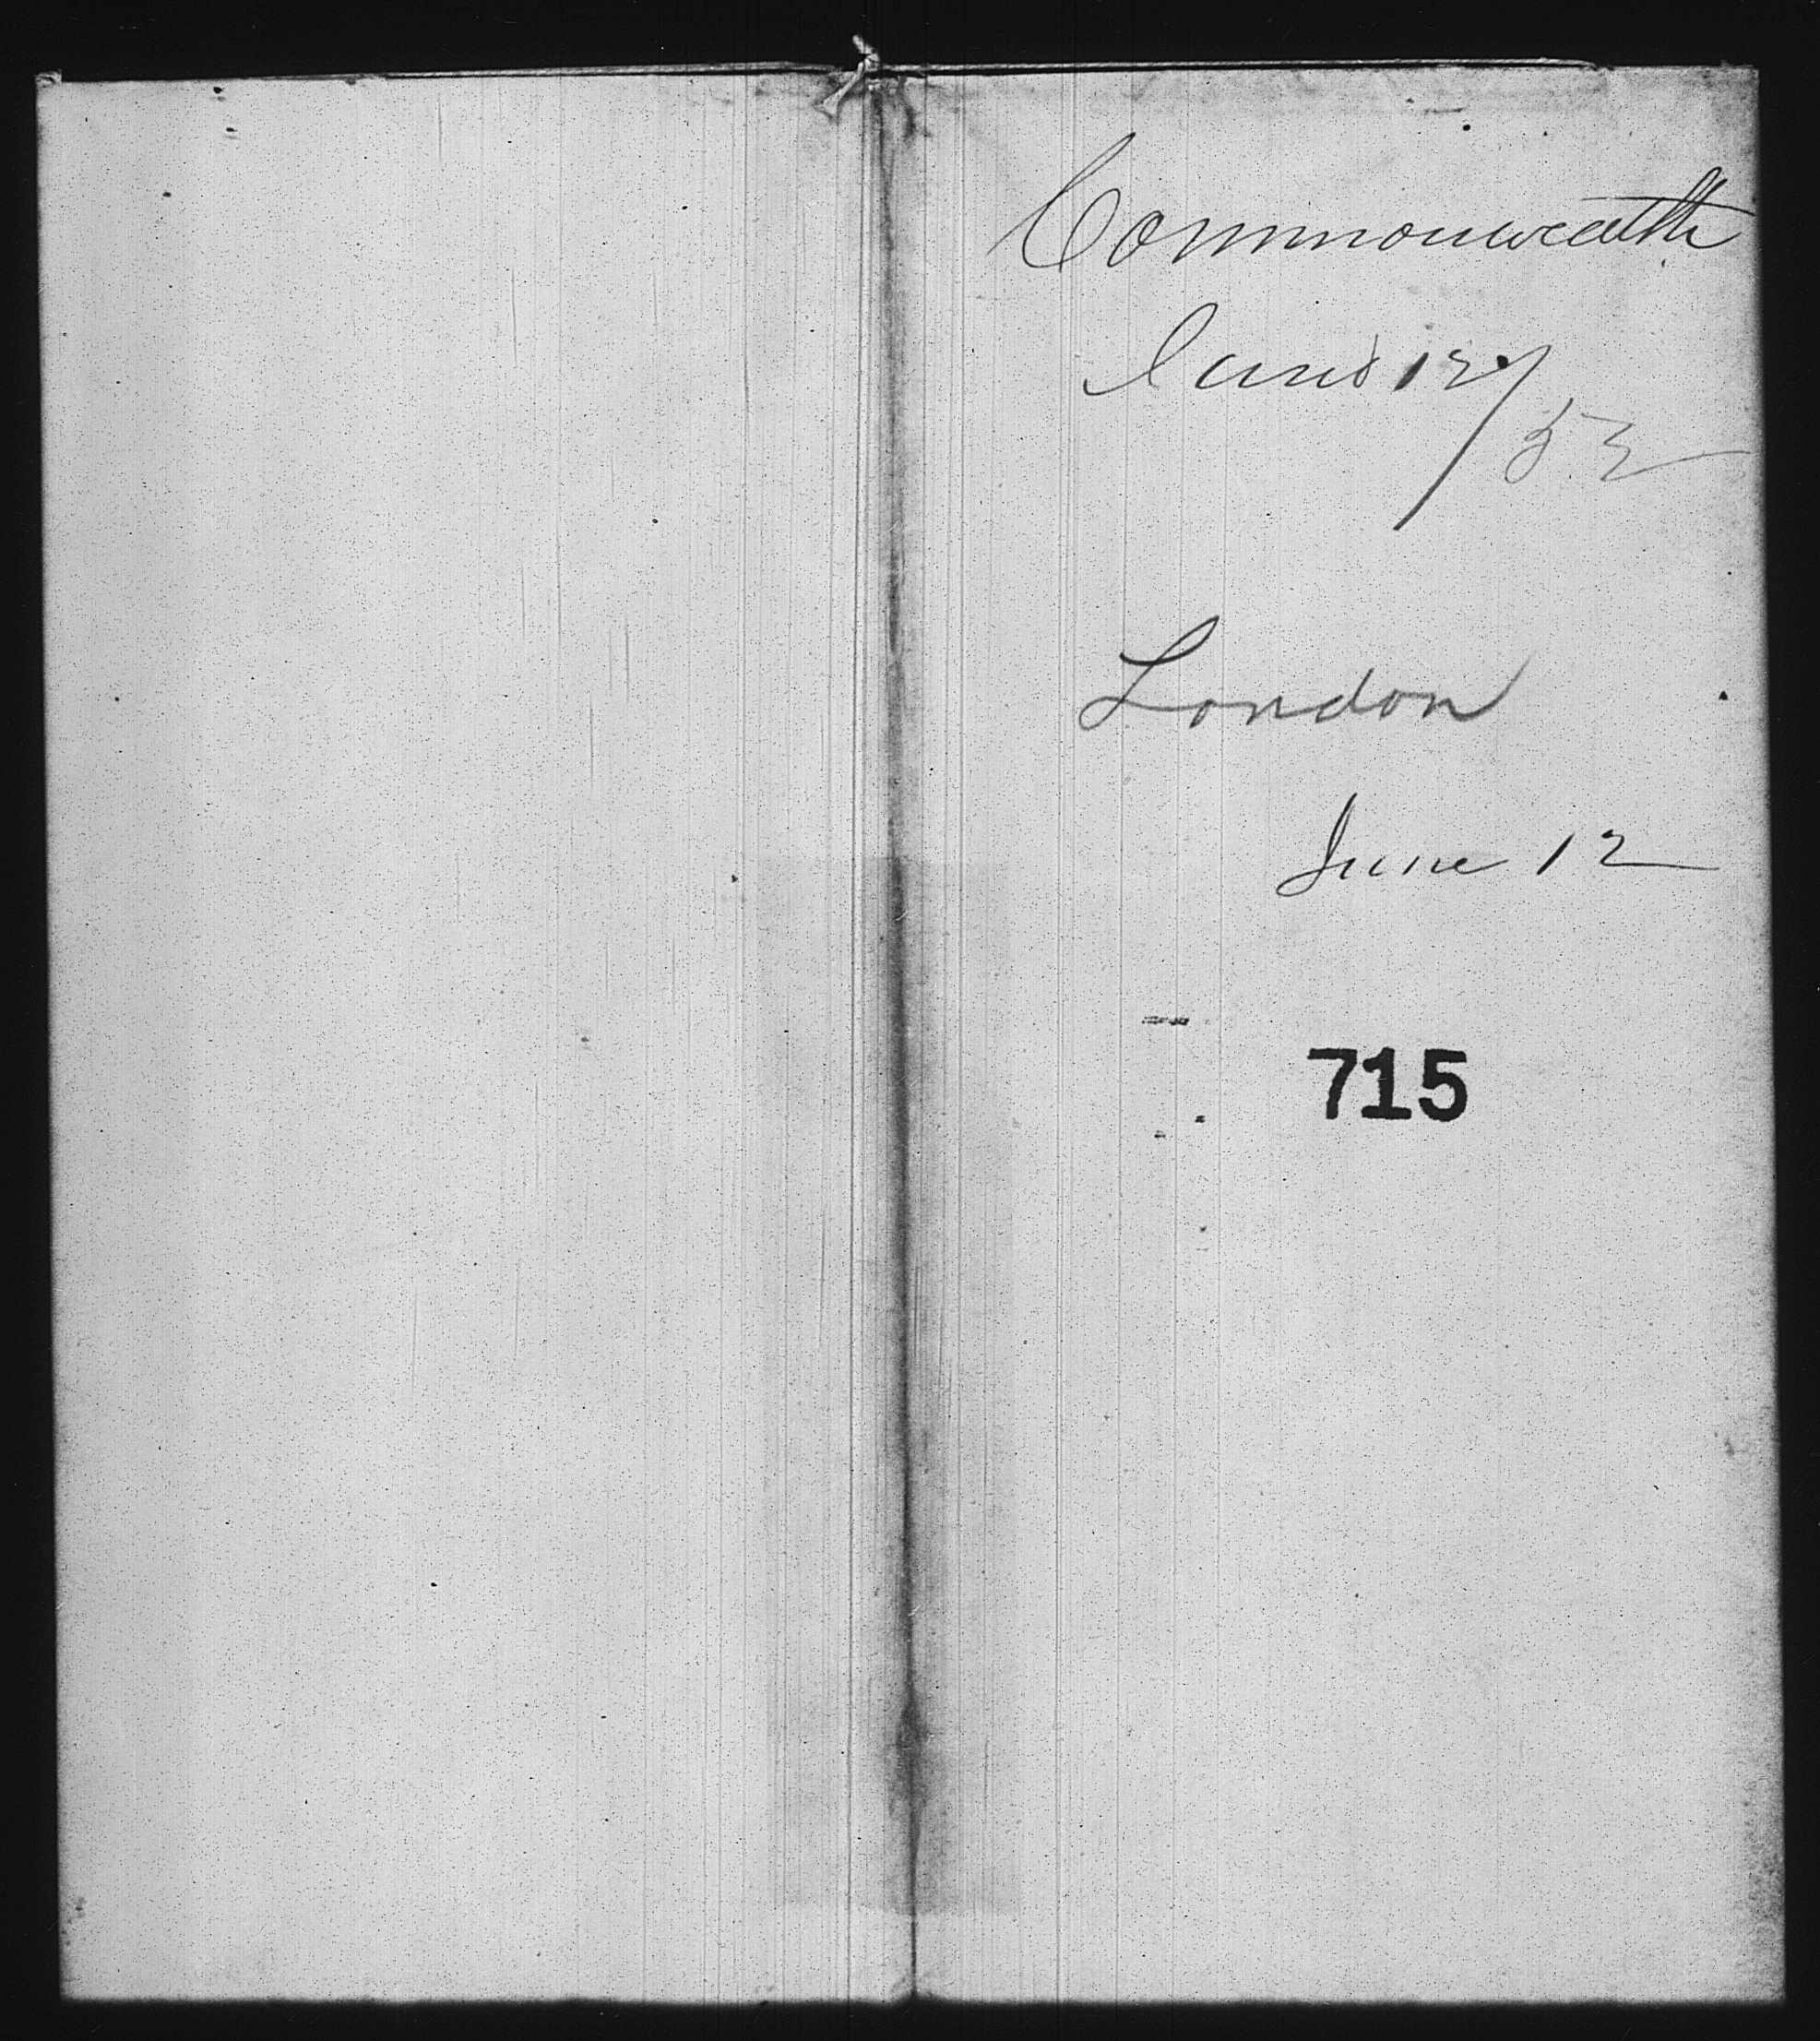 Commonwealth
June 12/
52
London
June 12
715